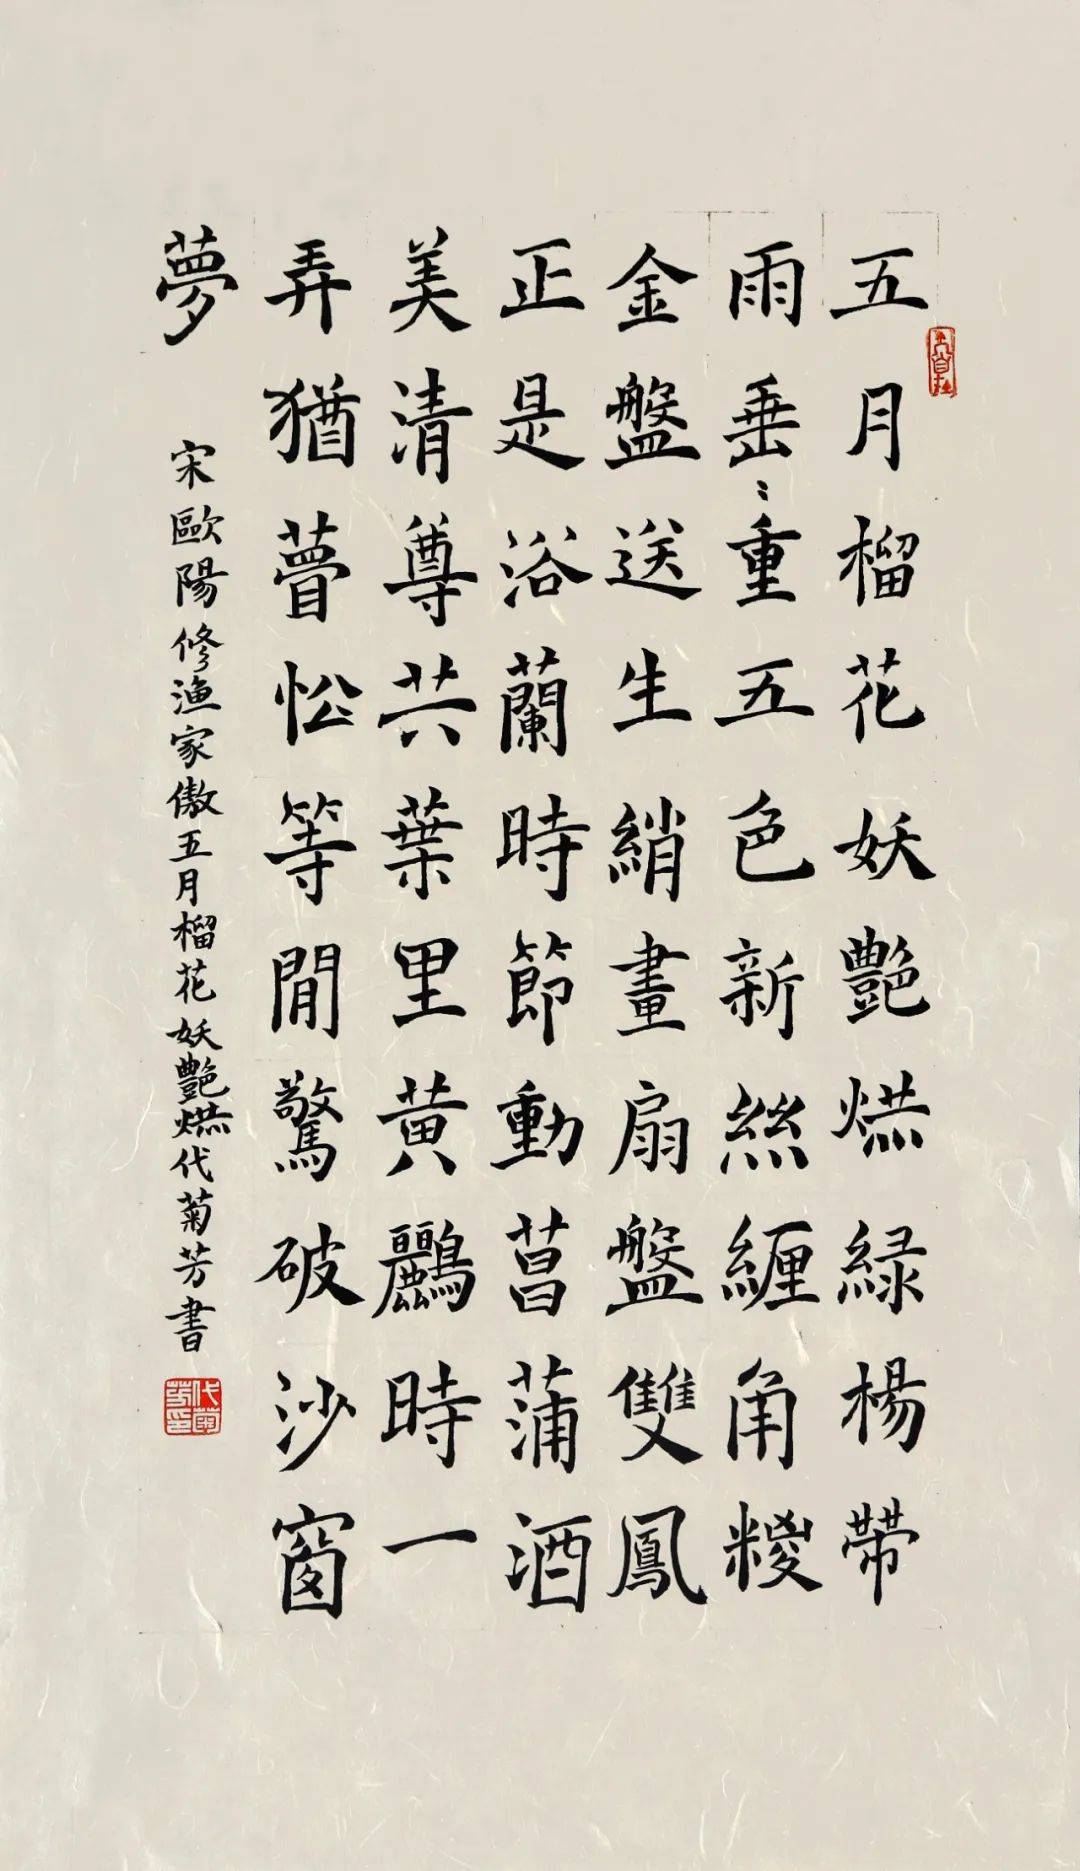 五月榴花妖艷烘緑楊帶
雨垂〻重五色新絲纏角糉
金盤送生綃畫扇盤雙鳳
正是浴蘭時節動菖蒲酒
美清尊共葉里黃鸝時一
弄猶瞢忪等閒驚破沙窗
夢
宋歐陽修渔家傲五月榴花妖艷烘代菊芳書
代菊芳印